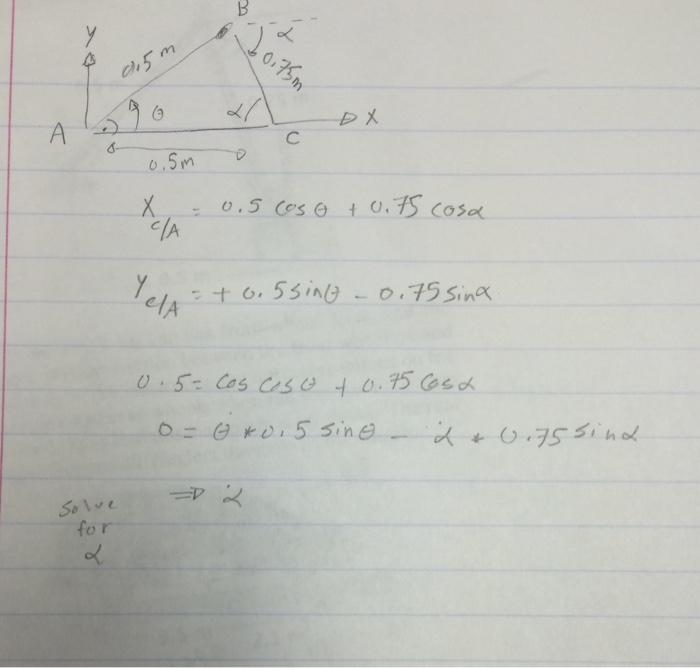 B
Y
α
0.5 m
0.75m
θ
α
A
C
X
0.5m
X C/A = 0.5 cosθ + 0.75 cosα
Y C/A = + 0.5 sinθ - 0.75 sinα
0.5 = cos cosθ + 0.75 cosα
0 = θ̇ * 0.5 sinθ - α̇ * 0.75 sinα
solve
for
α
⇒ α̇